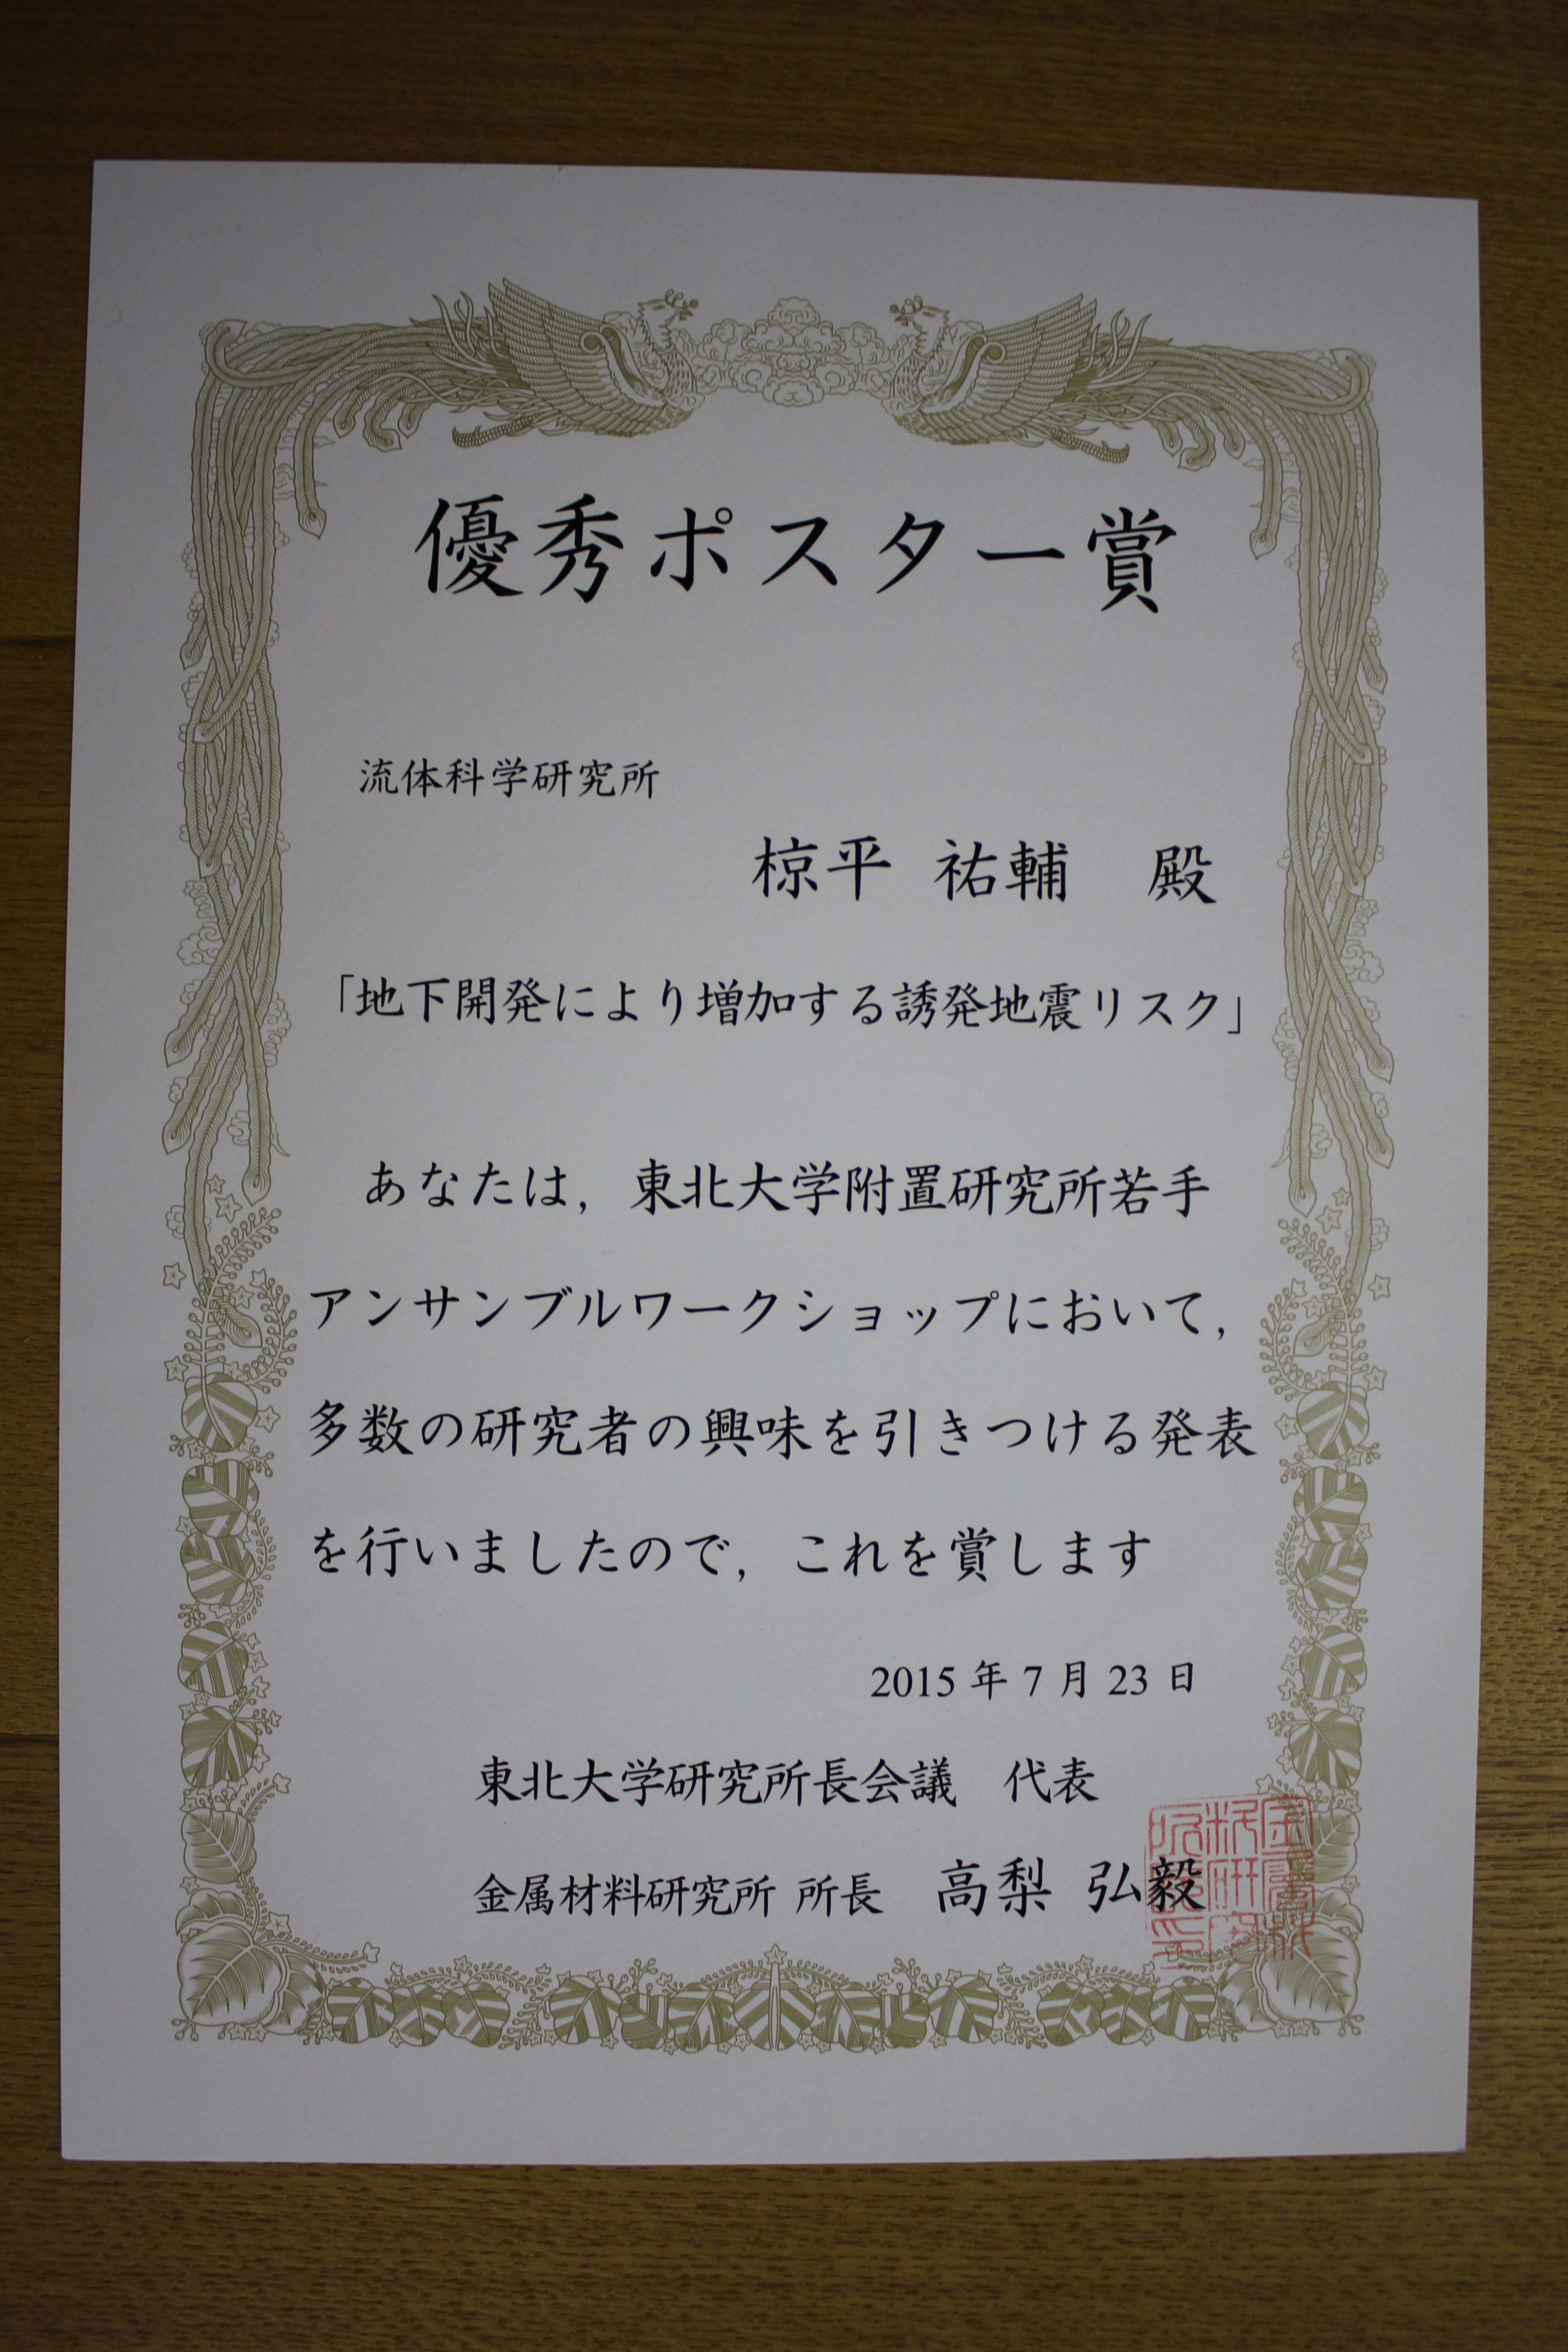 優秀ポスター賞
流体科学研究所
椋平 祐輔 殿
「地下開発により増加する誘発地震リスク」
あなたは，東北大学附置研究所若手
アンサンブルワークショップにおいて，
多数の研究者の興味を引きつける発表
を行いましたので，これを賞します
2015 年 7 月 23 日
東北大学研究所長会議 代表
金属材料研究所 所長 高梨 弘毅